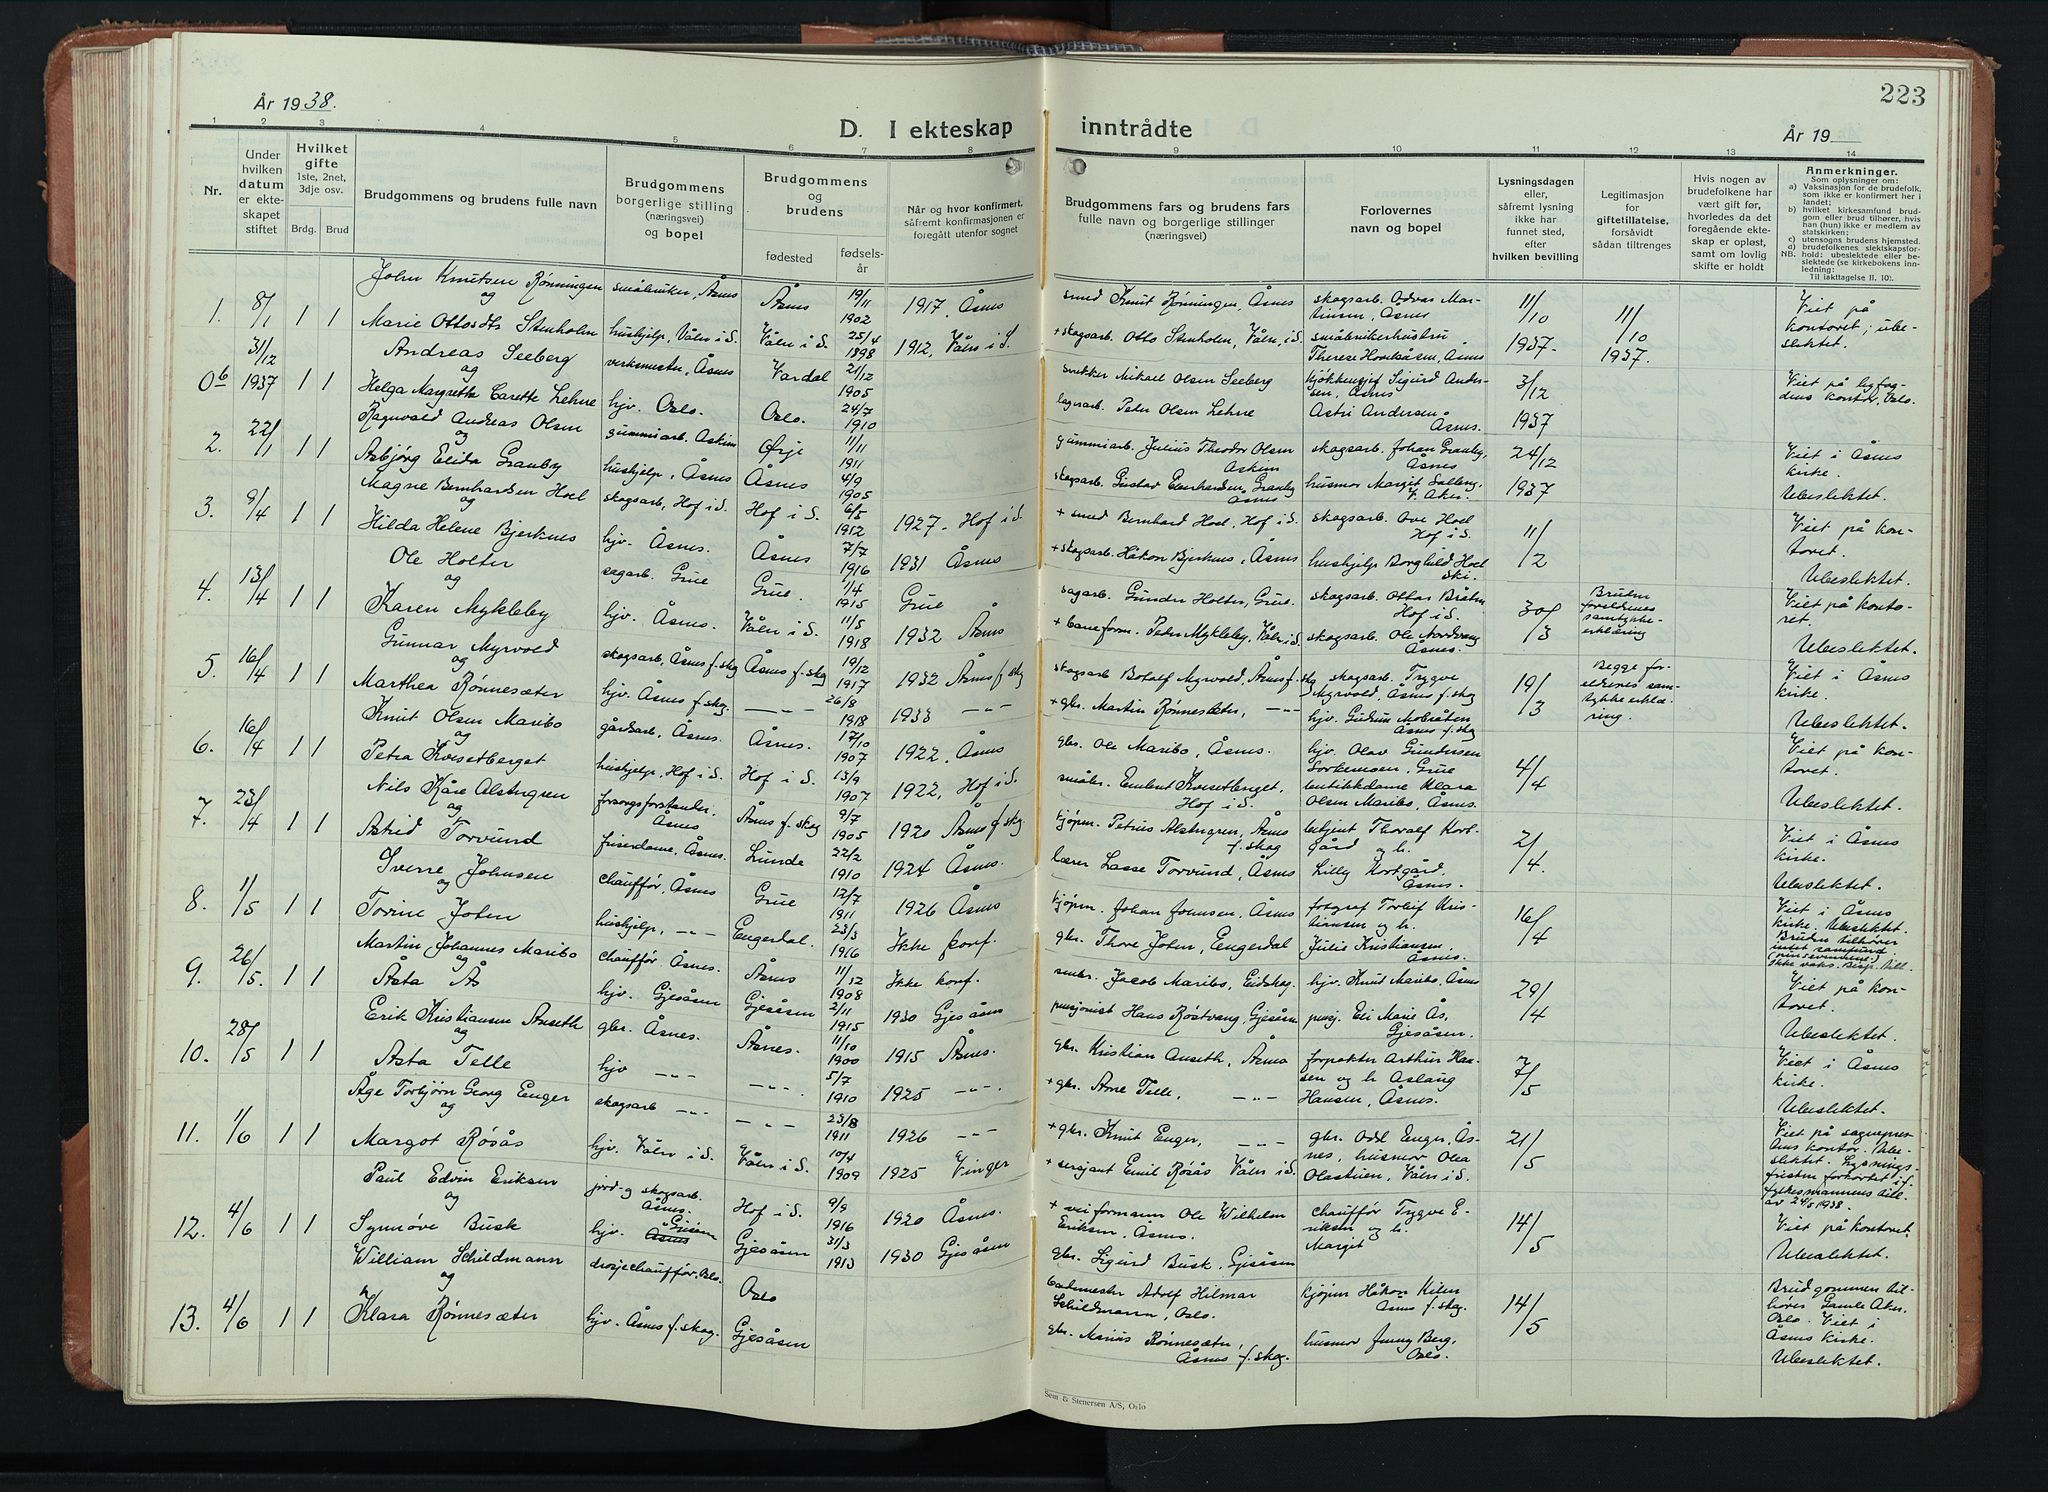 223
År 1938.
D. I ekteskap inntrådte
År 19
1 2 3 4 5 6 7 8 9 10 11 12 13 14
Nr.
Under hvilken datum er ekteskapet stiftet
Hvilket gifte 1ste, 2net, 3dje osv.
Brdg. Brud
Brudgommens og brudens fulle navn
Brudgommens borgerlige stilling (næringsvei) og bopel
Brudgommens og brudens
fødested
fødselsår
Når og hvor konfirmert, såfremt konfirmasjonen er foregått utenfor sognet
Brudgommens fars og brudens fars fulle navn og borgerlige stillinger (næringsvei)
Forlovernes navn og bopel
Lysningsdagen eller, såfremt lysning ikke har funnet sted, efter hvilken bevilling
Legitimasjon for giftetillatelse, forsåvidt sådan tiltrenges
Hvis nogen av brudefolkene har vært gift før, hvorledes da det foregående ekteskap er opløst, samt om lovlig skifte er holdt
Anmerkninger.
Som oplysninger om:
a) Vaksinasjon for de brudefolk, som ikke er konfirmert her i landet;
b) hvilket kirkesamfund brudgom eller brud tilhører, hvis han (hun) ikke er medlem av statskirken;
c) utensogns brudens hjemsted.
d) brudefolkenes slektskapsforhold: ubeslektede eller beslektede (se kirkebokens innledning:
NB.
Til iakttagelse II. 10).
1. 8/1 1 1 John Knutsen Rønningen småbruker, Åsnes Åsnes 19/11 1902 1917, Åsnes smed Knut Rønningen, Åsnes skogsarb. Odvar Martinsen, Åsnes 11/10 1937. 11/10 1937. Viet på kontoret; ubeslektet.
og
Marie Ottosdtr Stenholm hushjelp, Våler i S. Våler i S. 25/4 1898 1912, Våler i S. + skogsarb. Otto Stenholm, Våler i S. småbrukerhustru Therese Åsnes
0b 31/12 1937 1 1 Andreas Seeberg verksmester, Åsnes Vardal 21/12 1905 snekker Mikael Olsen Seeberg Sigurd Andersen, Åsnes 3/12 1937 Viet på byfogdens kontor, Oslo.
og
Helga Margrethe Carette Lehne hjv. Oslo. Oslo. 24/7 1910 lagerarb. Peter Olsen Lehne Astri Andersen Åsnes.
2. 22/1 1 1 Ragnvald Andreas Olsen gummiarb. Askim Ørje 11/11 1911 gummiarb. Julius Theodor Olsen Askim skogsarb. Johan Granby, Åsnes 24/12 1937 Viet i Åsnes kirke. Ubeslektet.
og
Asbjørg Elida Granby hushjelp, Åsnes Åsnes 4/9 1905 skogsarb. Gustav Eberhardsen Granby Åsnes husmor Margit Aker.
3. 9/4 1 1 Magne Bernhardsen Hoel skogsarb, Hof i S. Hof i S. 6/5 1912 1927. Hof i S + smed Bernhard Hoel, Hof i S. skogsarb. Ove Hoel Hof i S. 11/2 Viet på kontoret. Ubeslektet.
og
Hilda Helene Bjerknes hjv. Åsnes. Åsnes 7/7 1916 1931 Åsnes + skogsarb. Håkon Bjerknes, Åsnes hushjelp Borghild Hoel Ski.
4. 13/4 1 1 Ole Holter sagarb. Grue Grue. 1/4 1915 Grue sagarb. Gunder Holter, Grue. skogsarb. Ottar Bråten Hof i S. 30/3 Brudens foreldrenes samtykkeerklæring Viet på kontoret. Ubeslektet.
og
Karen Mykleby hjv. Åsnes. Våler i S. 11/5 1918 1932 Åsnes + baneform. Peter Mykleby, Våler i S. skogsarb. Ole Nordvang Åsnes.
5. 16/4 1 1 Gunnar Myrvold skogsarb, Åsnes f. skog Åsnes f. skog 19/12 1917 1932 Åsnes f skog skogsarb Botolf Myrvold, Åsnes f. skog skogsarb. Trygve Myrvold, Åsnes f. skog 19/3 Begge foreldrenes samtykkeerklæring. Viet i Åsnes kirke. Ubeslektet.
og
Marthea Rønnesæter hjv. Åsnes f. skog. -"- 26/8 1918 1933 -"- + gbr. Martin Rønnesæter, -"- hjv. Gudrun Åsnes f. skog
6. 16/4 1 1 Knut Olsen Maribo gårdsarb, Åsnes. Åsnes. 17/10 1907 1922, Åsnes gbr. Ole Maribo, Åsnes. hjv. Olav Gundersen Grue 4/4 Viet på kontoret. Ubeslektet.
og
Petra Kvesetberget hushjelp, Hof i S. Hof i S. 13/9 1907 1922, Hof i S. småbr. Embret Kvesetberget, Hof i S. butikkdame Klara Olsen Maribo, Åsnes.
7. 23/4 1 1 Nils Kåre Alstergren forsorgsforstander, Åsnes Åsnes f. skog 9/7 1905 1920 Åsnes f skog kjøpm. Petrus Alstergren, Åsnes f. skog betjent Thoralf Kortgård og h. 2/4. Viet i Åsnes kirke. Ubeslektet.
og
Astrid Torvund friserdame, Åsnes. Lunde 22/2 1910 1924 Åsnes. lærer Lasse Torvund, Åsnes Lilly Kortgård, Åsnes.
8. 1/5 1 1 Sverre Johnsen chauffør, Åsnes Grue 12/7 1911 1926 Åsnes kjøpm. Johan Johnsen, Åsnes fotograf Torleif Kristiansen og h. 16/4 Viet i Åsnes kirke. Ubeslektet. Bruden tilhører intet samfund (pinsevennene.) Ikke vaks.
og
Torine Joten hushjelp, -"- Engerdal. 23/3 1916 Ikke konf. gbr. Thore Joten, Engerdal Julie Kristiansen. Åsnes.
9. 26/5. 1 1 Martin Johannes Maribo chauffør Åsnes. Åsnes 11/12 1908 Ikke konf. småbr. Jacob Maribo, Eidskog. hjv. Knut Maribo, Åsnes 29/4 Viet på kontoret. Ubeslektet.
og
Åsta Ås hjv. Gjesåsen Gjesåsen 2/11 1915 1930 Gjesåsen pensjonist Hans Røstvang, Gjesåsen pensj. Eli Marie Ås, Gjesåsen.
10. 28/5 1 1 Erik Kristiansen Anseth gbr. Åsnes. Åsnes. 11/10 1900 1915 Åsnes. gbr. Kristian Anseth, Åsnes forpakter Arthur Hansen og h Aslaug Hansen, Åsnes. 7/5 Viet i Åsnes kirke. Ubeslektet.
og
Asta Telle hjv -"- -"-. 5/7 1910 1925 -"-. + gbr. Arne Telle, -"-
11. 1/6 1 1 Åge Torbjørn Georg Enger skogsarb -"- -"- 23/8 1911 1926 -"- + gbr. Knut Enger, -"- gbr. Odd Enger, Åsnes, husmor Olea Olastuen, Våler i S. 21/5 Viet på sogneprestens kontor. Ubeslektet. Lysningsfristen forkortet i.f. fylkesmannens till. av 24/5 1938.
og
Margot Røsås hjv. Våler i S. Våler i S. 10/4 1909 1925 Vinger + sersjant Emil Røsås Våler i S.
12. 4/6 1 1 Paul Edvin Eriksen jord- og skogsarb. Åsnes. Hof i S. 9/9 1916 1920 Åsnes. + veiformann Ole Wilhelm Eriksen, Åsnes. chauffør Trygve Eriksen og h. Margit 14/5 Viet på kontoret. Ubeslektet.
og
Synnøve Busk hjv. Gjesåsen Åsnes Gjesåsen 31/3 1913 1930 Gjesåsen gbr. Sigurd Busk, Gjesåsen
13. 4/6 1 1 William Schildmann drosjechauffør, Oslo. Oslo bademester Adolf Hilmar Schildmann, Oslo. kjøpm Håkon Kilen Åsnes f. skog. 14/5 Brudgommen tilhører Gamle Aker, Oslo. Viet i Åsnes kirke. Ubeslektet.
og
Klara Rønnesæter hjv. Åsnes f. skog. Gjesåsen gbr. Marius Rønnesæter, Åsnes f. skog. husmor Jenny Berg, Oslo.
Sem & Stenersen A/S, Oslo